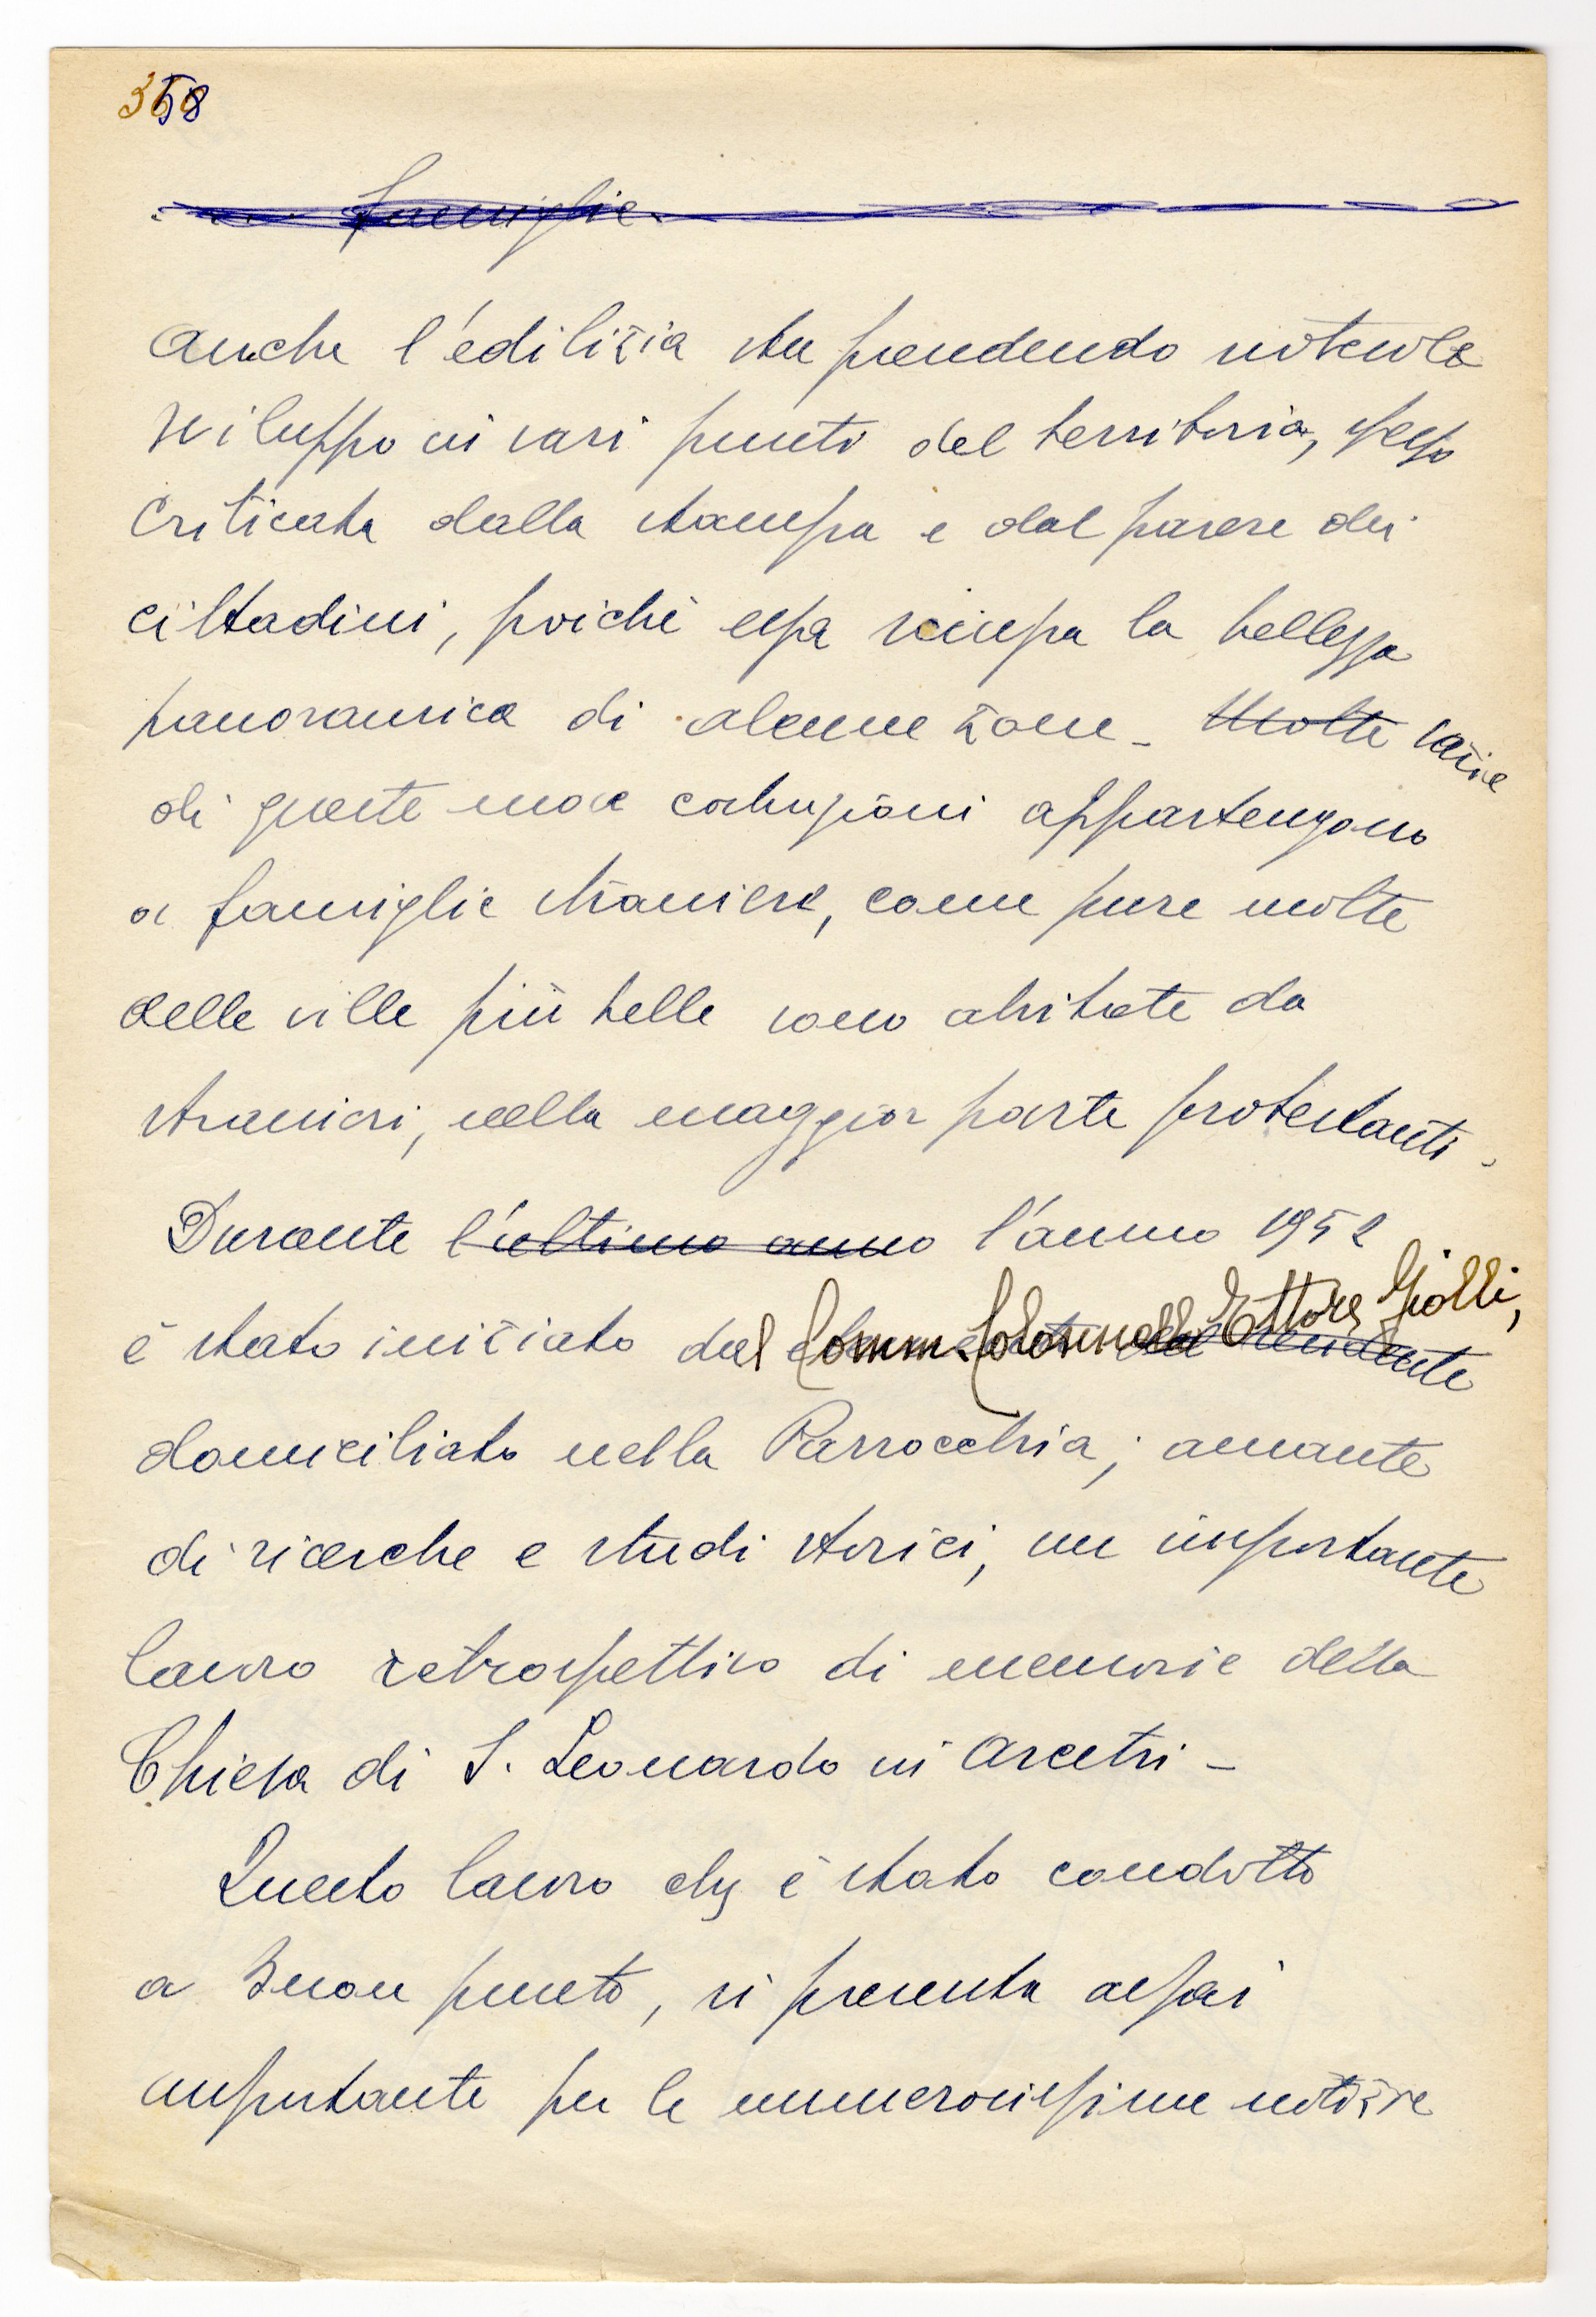 358
famiglie
Anche l'edilizia sta prendendo notevole
sviluppo in vari punti del territorio, spesso
criticata dalla stampa e dal parere dei
cittadini, poichè essa sciupa la bellezza
panoramica di alcune zone - Molte varie
di queste nuove costruzioni appartengono
a famiglie straniere, come pure molte
delle ville più belle sono abitate da
stranieri, nella maggior parte protestanti -
Durante l'ultimo anno l'anno 1952
è stato iniziato dal Comm. Colonnello Ettore Giolli,
domiciliato nella Parrocchia, amante
di ricerche e studi storici, un importante
lavoro retrospettivo di memorie della
Chiesa di S. Leonardo in Arcetri -
Questo lavoro che è stato condotto
a buon punto, si presenta assai
importante per le numerosissime notizie